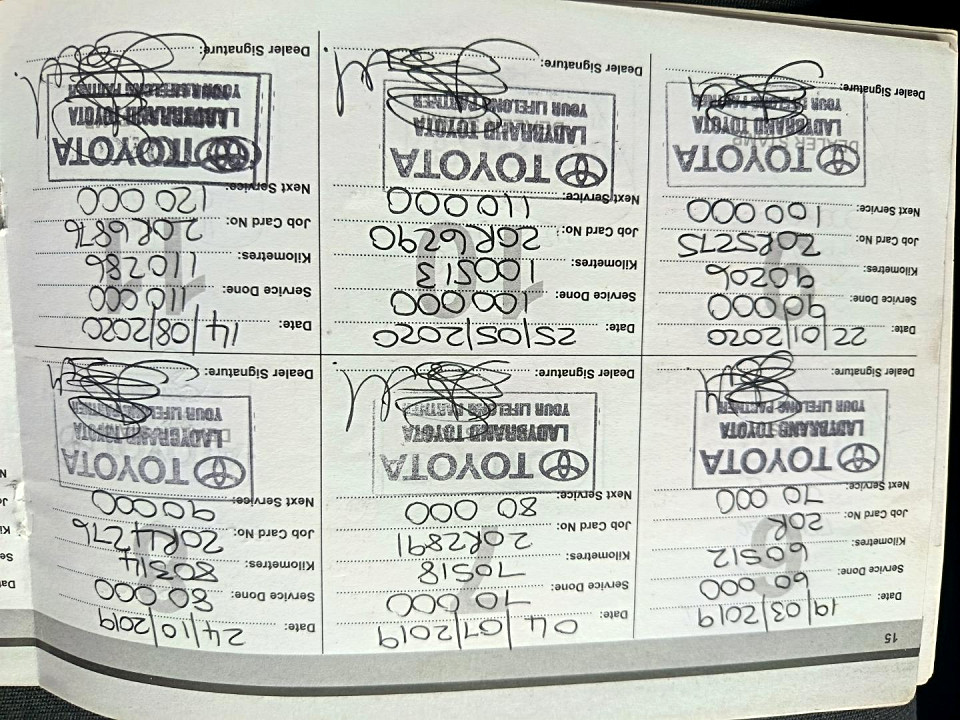 15
6
Date: 19/03/2019
Service Done: 60 000
Kilometres: 60512
Job Card No: 20R
Next Service: 70 000
TOYOTA
LADYBRAND TOYOTA
YOUR LIFELONG PARTNER
Dealer Signature:
7
Date: 04/07/2019
Service Done: 70 000
Kilometres: 70518
Job Card No: 20R2891
Next Service: 80 000
TOYOTA
LADYBRAND TOYOTA
YOUR LIFELONG PARTNER
Dealer Signature:
8
Date: 24/10/2019
Service Done: 80 000
Kilometres: 80514
Job Card No: 20R4276
Next Service: 90 000
TOYOTA
LADYBRAND TOYOTA
YOUR LIFELONG PARTNER
Dealer Signature:
9
Date: 22/01/2020
Service Done: 90 000
Kilometres: 90206
Job Card No: 20R5275
Next Service: 100 000
TOYOTA
DEALER STAMP
LADYBRAND TOYOTA
YOUR LIFELONG PARTNER
Dealer Signature:
10
Date: 25/05/2020
Service Done: 100 000
Kilometres: 100513
Job Card No: 20R6290
Next Service: 110 000
TOYOTA
LADYBRAND TOYOTA
YOUR LIFELONG PARTNER
Dealer Signature:
11
Date: 14/08/2020
Service Done: 110 000
Kilometres: 110286
Job Card No: 20R6876
Next Service: 120 000
TOYOTA
LADYBRAND TOYOTA
YOUR LIFELONG PARTNER
Dealer Signature: